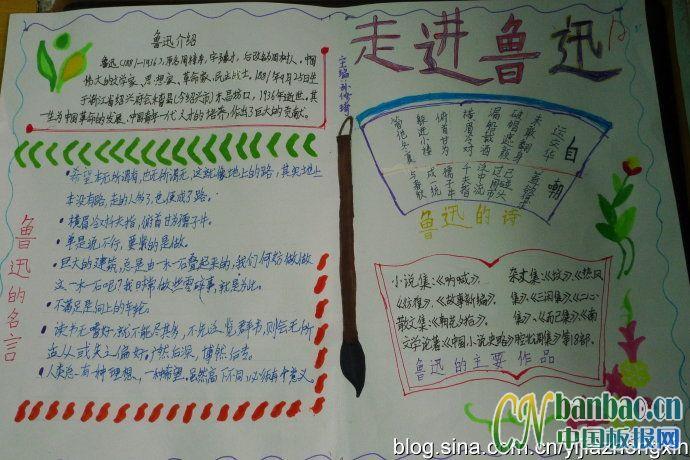 走进鲁迅
鲁迅介绍
鲁迅(1881-1936),原名周樟寿,字豫才,后改名周树人,中国
伟大的文学家、思想家、革命家、民主战士。1881年9月25日生
于浙江省绍兴府会稽县(今绍兴市)东昌坊口,1936年逝世。其
一生为中国革命的发展、中国青年一代人才的培养,作出了巨大的贡献。
主编
鲁迅的名言
希望本无所谓有,也无所谓无,这就像地上的路,其实地上
本没有路,走的人多了,也便成了路。
横眉冷对千夫指,俯首甘为孺子牛。
单是说不行,要紧的是做。
巨大的建筑,总是由一木一石叠起来的,我们何妨做做
这一木一石呢?我时常做些零碎事,就是为此。
不满足是向上的车轮。
读书无嗜好,就不能尽其多,不先泛览群书,则会无所
适从或失之偏好。广然后深,博然后专。
人类总有一种理想,一种希望。虽然高下不同,必须有个意义。
自嘲
运交华盖欲何求
未敢翻身已碰头
破帽遮颜过闹市
漏船载酒泛中流
横眉冷对千夫指
俯首甘为孺子牛
躲进小楼成一统
管他冬夏与春秋
鲁迅的诗
小说集:《呐喊》、
《彷徨》、《故事新编》、
散文集:《朝花夕拾》、
文学论著《中国小说史略》
杂文集:《坟》、《热风
集》、《三闲集》、《二心
集》、《而已集》、《南
腔北调集》等18部。
鲁迅的主要作品
CNbanbao.cn
中国板报网
blog.sina.com.cn/yijiazhongxin